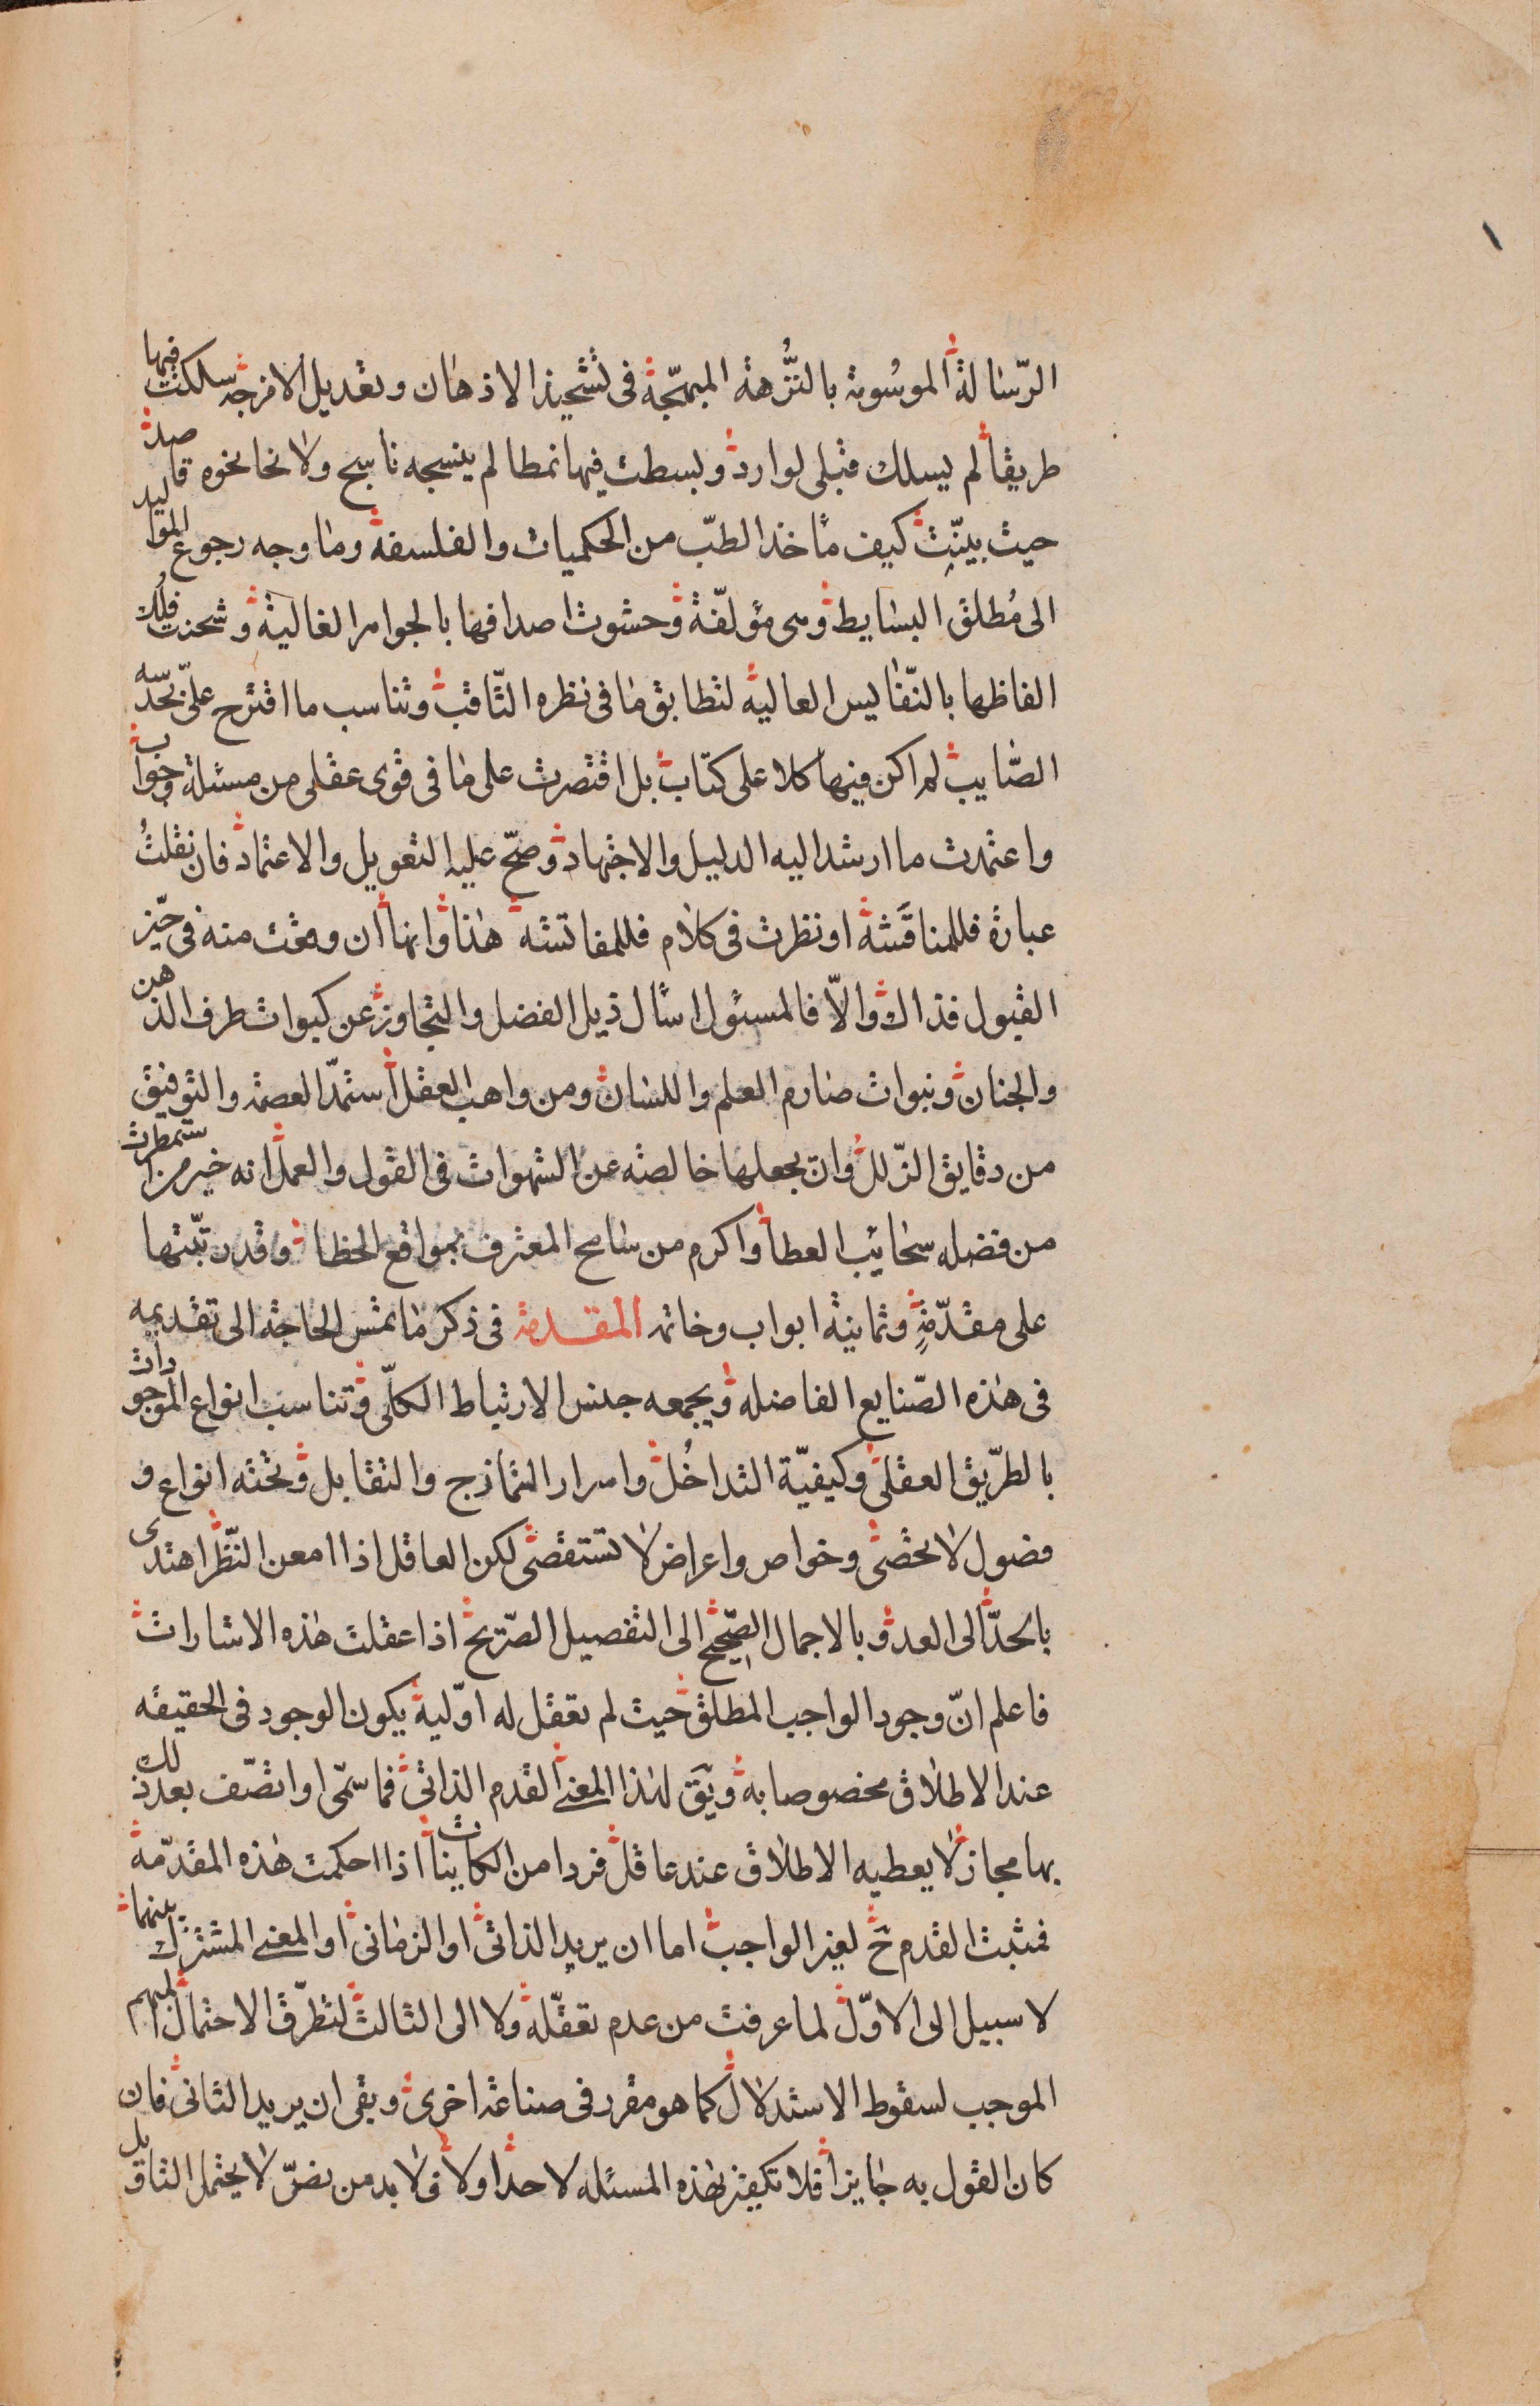 الرّسالة الموسومة بالنُّزهة المبهّجة فى تشحيذ الاذهان وتعديل الامزجه سلكت فيها
طريقا لم يسلك قبلى لوارد وبسطت فيها نمطا لم ينسجه ناسج ولا نحا نحوه قاصد
حيث بيّنت كيف مأخذ الطبّ من الحكميات والفلسفة وما وجه رجوع المواليد
الى مُطلق البسايط وهى مؤلفة وحشوت اصدافها بالجواهر الغالية وشحنت فلك
الفاظها بالنّفايس العالية لتطابق ما فى نظره الثّاقب وتناسب ما اقترح علىّ بحدسه
الصّايب لم اكن فيها كلا على كتاب بل اقتصرت على ما فى قوى عقلى من مسئلة وجواب
واعتمدت ما ارشد اليه الدليل والاجتهاد وصحّ عليه التعويل والاعتماد فان نقلتُ
عبارة فللمناقشة او نظرت فى كلام فللمفاتشه هذا وانها ان وقعت منه فى حيّز
القبول فذاك والاّ فالمسئول اسأل ذيل الفضل والتجاوز عن كبوات طرف الذهن
والجنان ونبوات صارم العلم واللسان ومن واهب العقل استمدّ العصمة والتوفيق
من دقايق الزّلل وان يجعلها خالصه عن الشهوات فى القول والعمل انه خير من استمطرت
من فضله سحائب العطا واكرم من سامح المعترف بمواقع الخطا وقد رتّبتها
على مقدّمةٍ وثمانية ابواب وخاتمه المقدمة فى ذكر ما تمس الحاجة الى تقديمه
فى هذه الصّنايع الفاضله ويجمعه جنس الارتباط الكلّى وتناسب انواع الموجودات
بالطّريق العقلى وكيفيّة التداخُل واسرار التمازج والتقابل وتحته انواع و
فصول لا تحصى وخواص واعراض لا تستقصى لكن العاقل اذا امعن النّظر اهتدى
بالحدّ الى العد وبالاجمال الصّحيح الى التفصيل الصّريح اذا عقلت هذه الاشارات
فاعلم انّ وجود الواجب المطلق حيث لم تعقل له اوّلية يكون الوجود فى الحقيقه
عند الاطلاق مخصوصا به ويَق لهذا المعنى القدم الذاتى فما سمّى او اتصّف بعد ذلك
بها مجاز لا يعطيه الاطلاق عند عاقل فردا من الكاينات اذا احكمت هذه المقدّمة
فمثبت القدم حَ لغير الواجب اما ان يريد الذاتى او الزمانى او المعنى المشترك بينهما
لا سبيل الى الاوّل لما عرفت من عدم تعقّله ولا الى الثالث لتطرّق الاحتمال المبهم
الموجب لسقوط الاستدلال كما هو مقرر فى صناعة اخرى وبقى ان يريد الثانى فان
كان القول به جايزا فلا تكفير بهذه المسئله لاحد اولا فلا بد من نصّ لا يحتمل التاويل